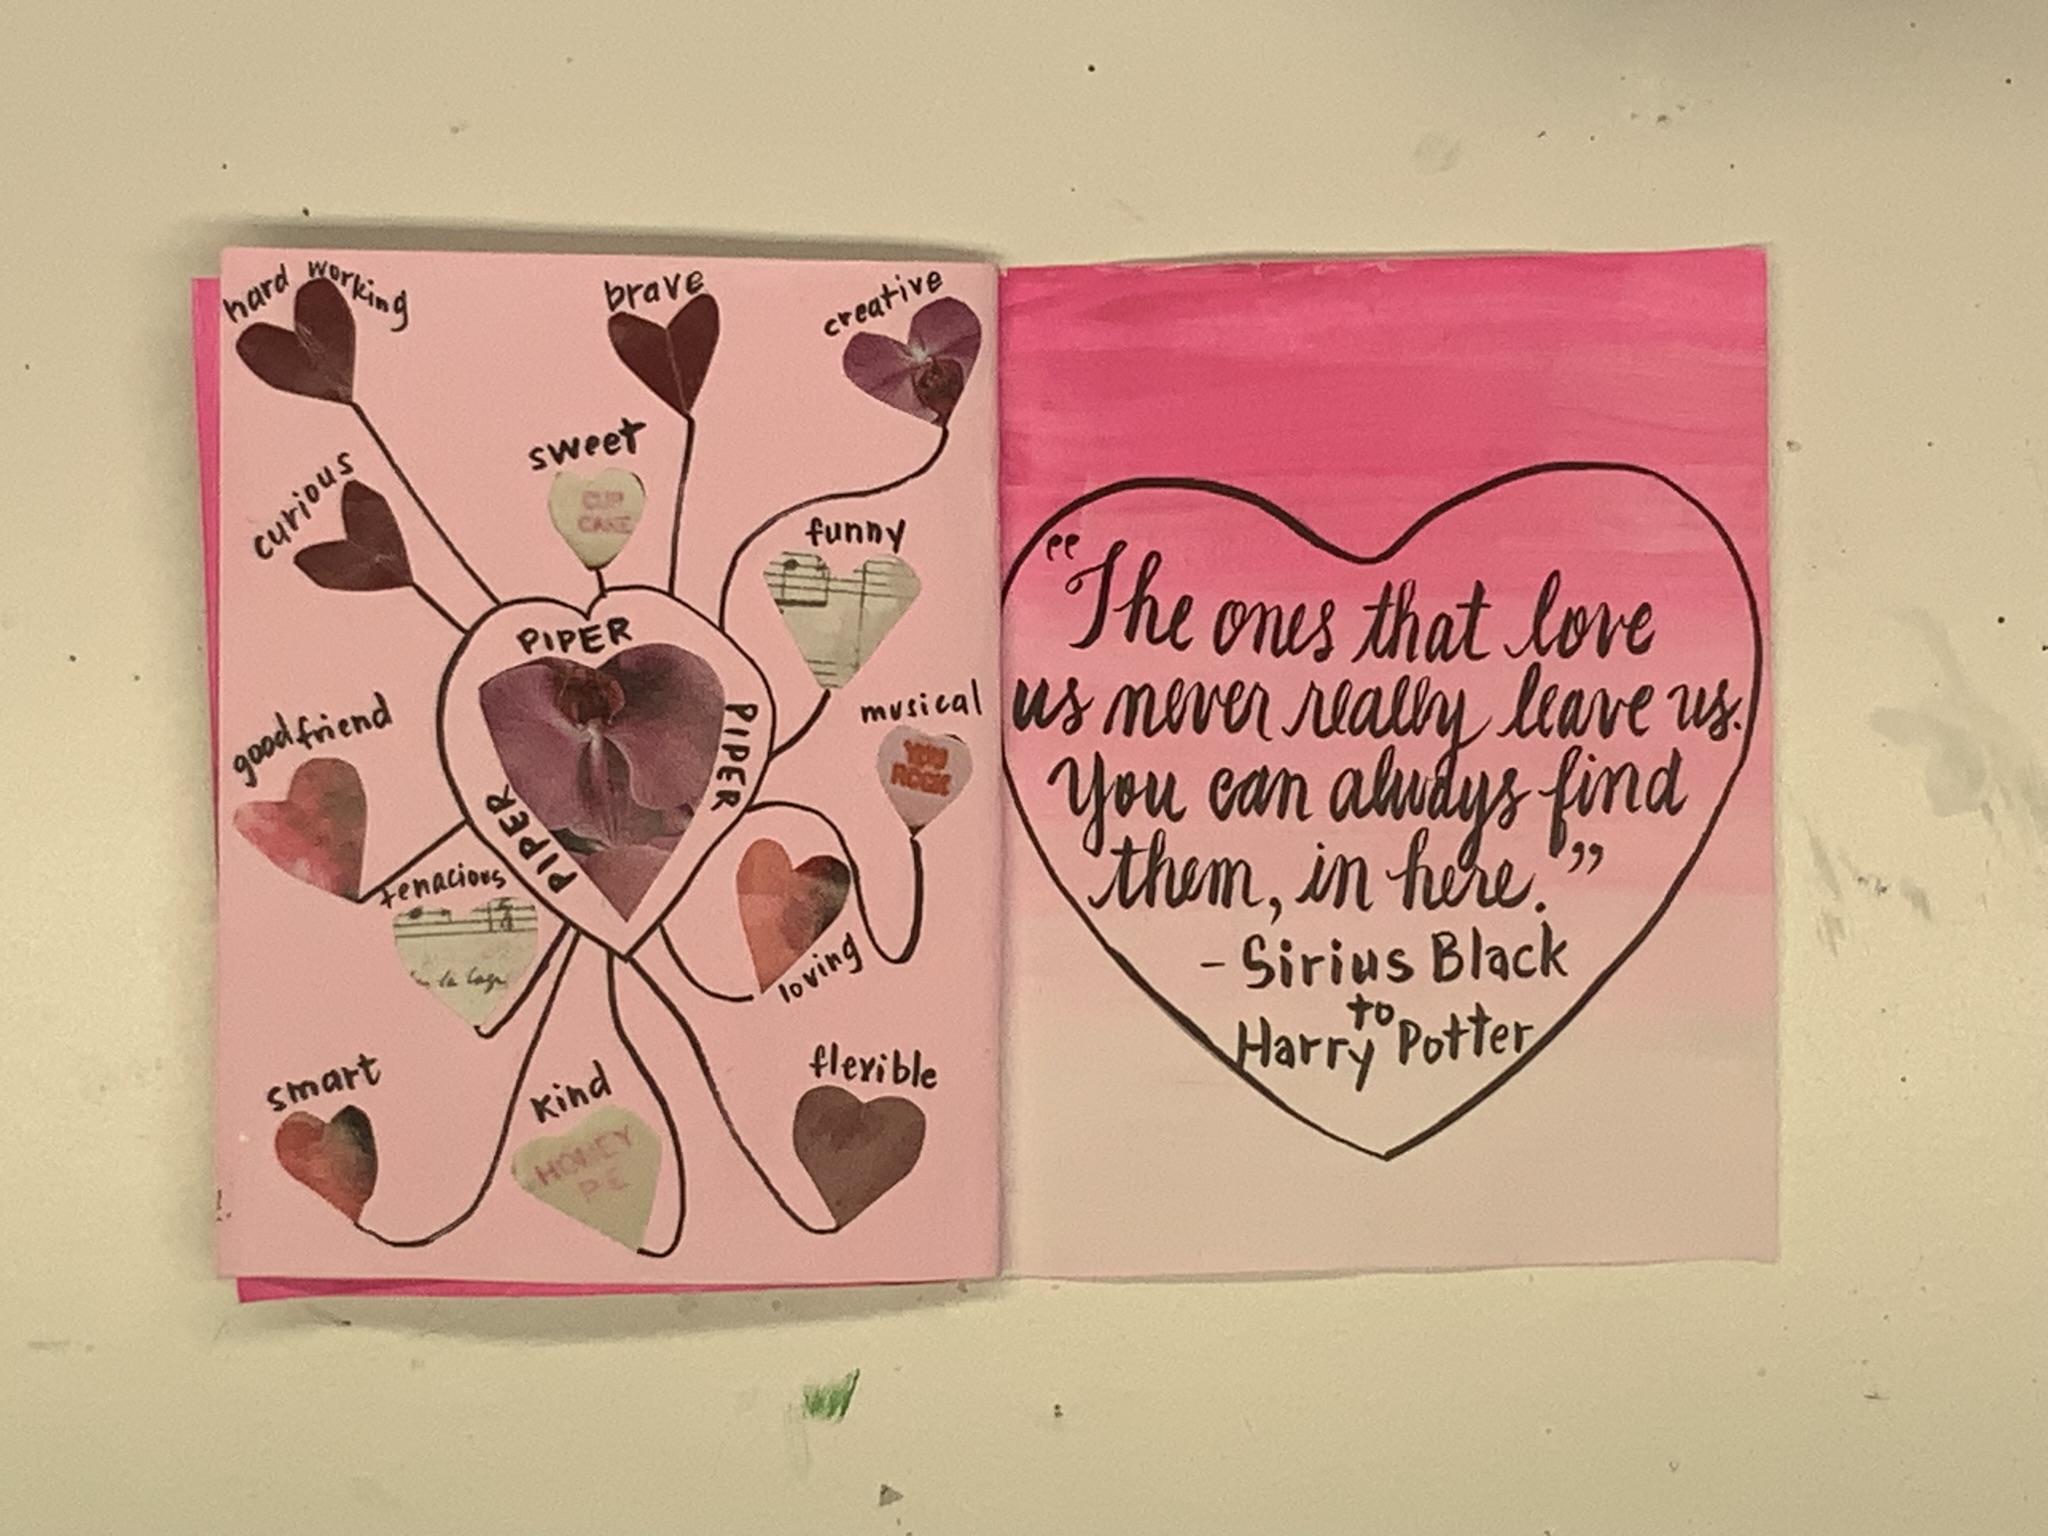 hard working
brave
creative
sweet
CUP
CAKE
curious
funny
PIPER
PIPER
PIPER
good friend
musical
YOU
ROCK
tenacious
loving
smart
kind
HONEY
flexible
"The ones that love
us never really leave us.
You can always find
them, in here."
- Sirius Black
to
Harry Potter